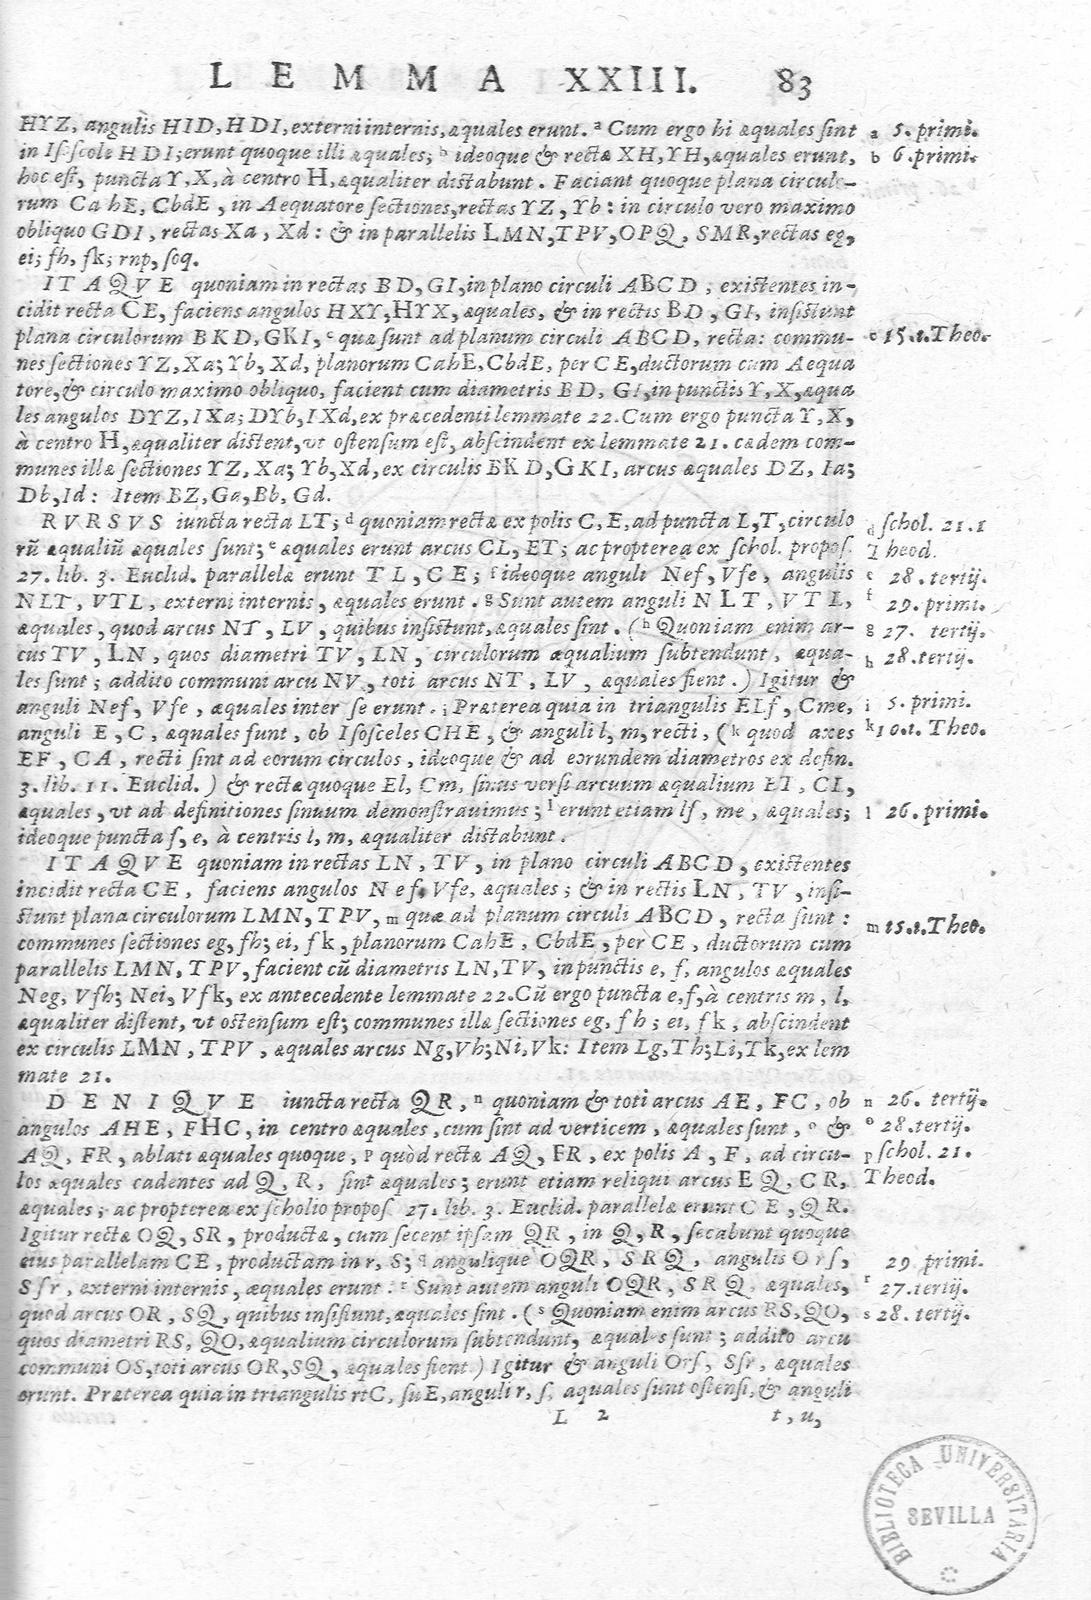 LEMMA XXIII. 83
HYZ, angulis HID, HDI, externi internis, æquales erunt. ª Cum ergo hi æquales sint a 5. primi.
in Isoscele HDI; erunt quoque illi æquales; ᵇ ideoque & rectæ XH, YH, æquales erunt, b 6. primi.
hoc est, puncta Y, X, à centro H, æqualiter distabunt. Faciant quoque plana circulo-
rum CahE, CbdE, in Aequatore sectiones, rectas YZ, Yb: in circulo vero maximo
obliquo GDI, rectas Xa, Xd: & in parallelis LMN, TPV, OPQ, SMR, rectas eg,
ei; fh, fk; rnp, soq.
ITAQVE quoniam in rectas BD, GI, in plano circuli ABCD, existentes in-
cidit recta CE, faciens angulos HXY, HYX, æquales, & in rectis BD, GI, insistunt
plana circulorum BKD, GKI, ᶜ quæ sunt ad planum circuli ABCD, recta: commu- c 15.1. Theo.
nes sectiones YZ, Xa; Yb, Xd, planorum CahE, CbdE, per CE, ductorum cum Aequa
tore, & circulo maximo obliquo, facient cum diametris BD, GI, in punctis Y, X, æqua
les angulos DYZ, IXa; DYb, IXd, ex præcedenti lemmate 22. Cum ergo puncta Y, X,
à centro H, æqualiter distent, vt ostensum est, abscindent ex lemmate 21. eædem com-
munes illæ sectiones YZ, Xa; Yb, Xd, ex circulis BKD, GKI, arcus æquales DZ, Ia;
Db, Id: Item BZ, Ga, Bb, Gd.
RVRSVS iuncta recta LT; ᵈ quoniam rectæ ex polis C, E, ad puncta L, T, circulo d schol. 21.1
rũ æqualiũ æquales sunt; ᵉ æquales erunt arcus CL, ET; ac propterea ex schol. propos. Theod.
27. lib. 3. Euclid. parallelæ erunt TL, CE; ᶠ ideoque anguli Nef, Vfe, angulis e 28. tertij.
NLT, VTL, externi internis, æquales erunt. ᵍ Sunt autem anguli NLT, VTL, f 29. primi.
æquales, quod arcus NT, LV, quibus insistunt, æquales sint. (ʰ Quoniam enim ar- g 27. tertij.
cus TV, LN, quos diametri TV, LN, circulorum æqualium subtendunt, æqua- h 28. tertij.
les sunt; addito communi arcu NV, toti arcus NT, LV, æquales fient.) Igitur &
anguli Nef, Vfe, æquales inter se erunt. ⁱ Præterea quia in triangulis ELf, Cme, i 5. primi.
anguli E, C, æquales sunt, ob Isosceles CHE, & anguli l, m, recti, (ᵏ quod axes k 10.1. Theo.
EF, CA, recti sint ad eorum circulos, ideoque & ad eorundem diametros ex defin.
3. lib. 11. Euclid.) & rectæ quoque El, Cm, sinus versi arcuum æqualium ET, CL,
æquales, vt ad definitiones sinuum demonstrauimus; ˡ erunt etiam lf, me, æquales; l 26. primi.
ideoque puncta f, e, à centris l, m, æqualiter distabunt.
ITAQVE quoniam in rectas LN, TV, in plano circuli ABCD, existentes
incidit recta CE, faciens angulos Nef, Vfe, æquales; & in rectis LN, TV, insi-
stunt plana circulorum LMN, TPV, ᵐ quæ ad planum circuli ABCD, recta sunt: m 15.1. Theo.
communes sectiones eg, fh; ei, fk, planorum CahE, CbdE, per CE, ductorum cum
parallelis LMN, TPV, facient cũ diametris LN, TV, in punctis e, f, angulos æquales
Neg, Vfh; Nei, Vfk, ex antecedente lemmate 22. Cũ ergo puncta e, f, à centris m, l,
æqualiter distent, vt ostensum est; communes illæ sectiones eg, fh; ei, fk, abscindent
ex circulis LMN, TPV, æquales arcus Ng, Vh; Ni, Vk: Item Lg, Th; Li, Tk, ex lem
mate 21.
DENIQVE iuncta recta QR, ⁿ quoniam & toti arcus AE, FC, ob n 26. tertij.
angulos AHE, FHC, in centro æquales, cum sint ad verticem, æquales sunt, ᵒ & o 28. tertij.
AQ, FR, ablati æquales quoque, ᵖ quòd rectæ AQ, FR, ex polis A, F, ad circu- p schol. 21.
los æquales cadentes ad Q, R, sint æquales; erunt etiam reliqui arcus EQ, CR, Theod.
æquales; ac propterea ex scholio propos. 27. lib. 3. Euclid. parallelæ erunt CE, QR.
Igitur rectæ OQ, SR, productæ, cum secent ipsam QR, in Q, R, secabunt quoque
eius parallelam CE, productam in r, S; q angulique OQR, SRQ, angulis Orf, 29 primi.
Ssr, externi internis, æquales erunt: ʳ Sunt autem anguli OQR, SRQ, æquales, r 27. tertij.
quod arcus OR, SQ, quibus insistunt, æquales sint. (ˢ Quoniam enim arcus RS, QO, s 28. tertij.
quos diametri RS, QO, æqualium circulorum subtendunt, æquales sunt; addito arcu
communi OS, toti arcus OR, SQ, æquales fient) Igitur & anguli Orf, Ssr, æquales
erunt. Præterea quia in triangulis rtC, suE, anguli r, s, æquales sunt ostensi, & anguli
L 2 t, u,
BIBLIOTECA UNIVERSITARIA
SEVILLA